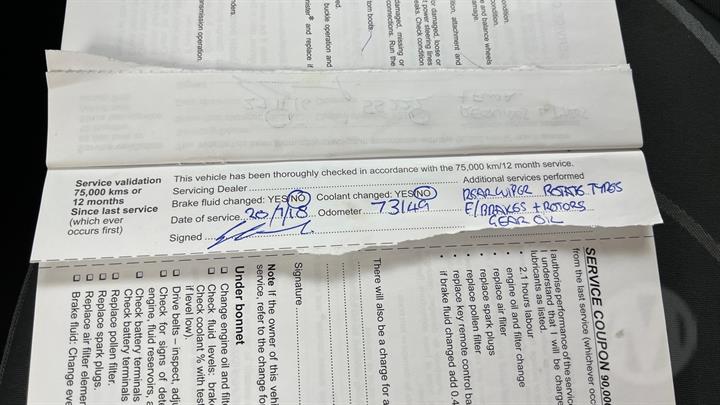 Service validation
75,000 kms or
12 months
Since last service
(which ever
occurs first)
This vehicle has been thoroughly checked in accordance with the 75,000 km/12 month service.
Servicing Dealer
Brake fluid changed: YES/NO Coolant changed: YES/NO
Date of service 20/7/18 Odometer 73149
Signed
Additional services performed
REAR WIPER ROTATE TYRES
F/BRAKES + ROTORS
GEAR OIL
SERVICE COUPON 90,000
from the last service (whichever occ
I authorise performance of the servic
I understand that I will be charge
lubricants as listed.
• 2.1 hours labour
• engine oil and filter change
• replace air filter
• replace spark plugs
• replace pollen filter
• replace key remote control ba
• if brake fluid changed add 0.4
There will also be a charge for a
Signature
Note If the owner of this vehi
service, refer to the change fo
Under bonnet
Change engine oil and filte
Check fluid levels; brak
Check coolant % with test
if level low).
Drive belts – inspect, adju
Check for signs of dete
engine, fluid reservoirs, a
Check battery terminals
Check battery terminals
Replace pollen filter.
Replace spark plugs.
Replace air filter elemen
Brake fluid: Change eve
ondition.
e and balance wheels
amage.
ition, attachment and
or damaged, loose or
t power steering lines
eaks. Check condition
damaged, missing or
connections. Run the
torn boots
buckle operation and
nister* and replace if
nders.
ansmission operation.